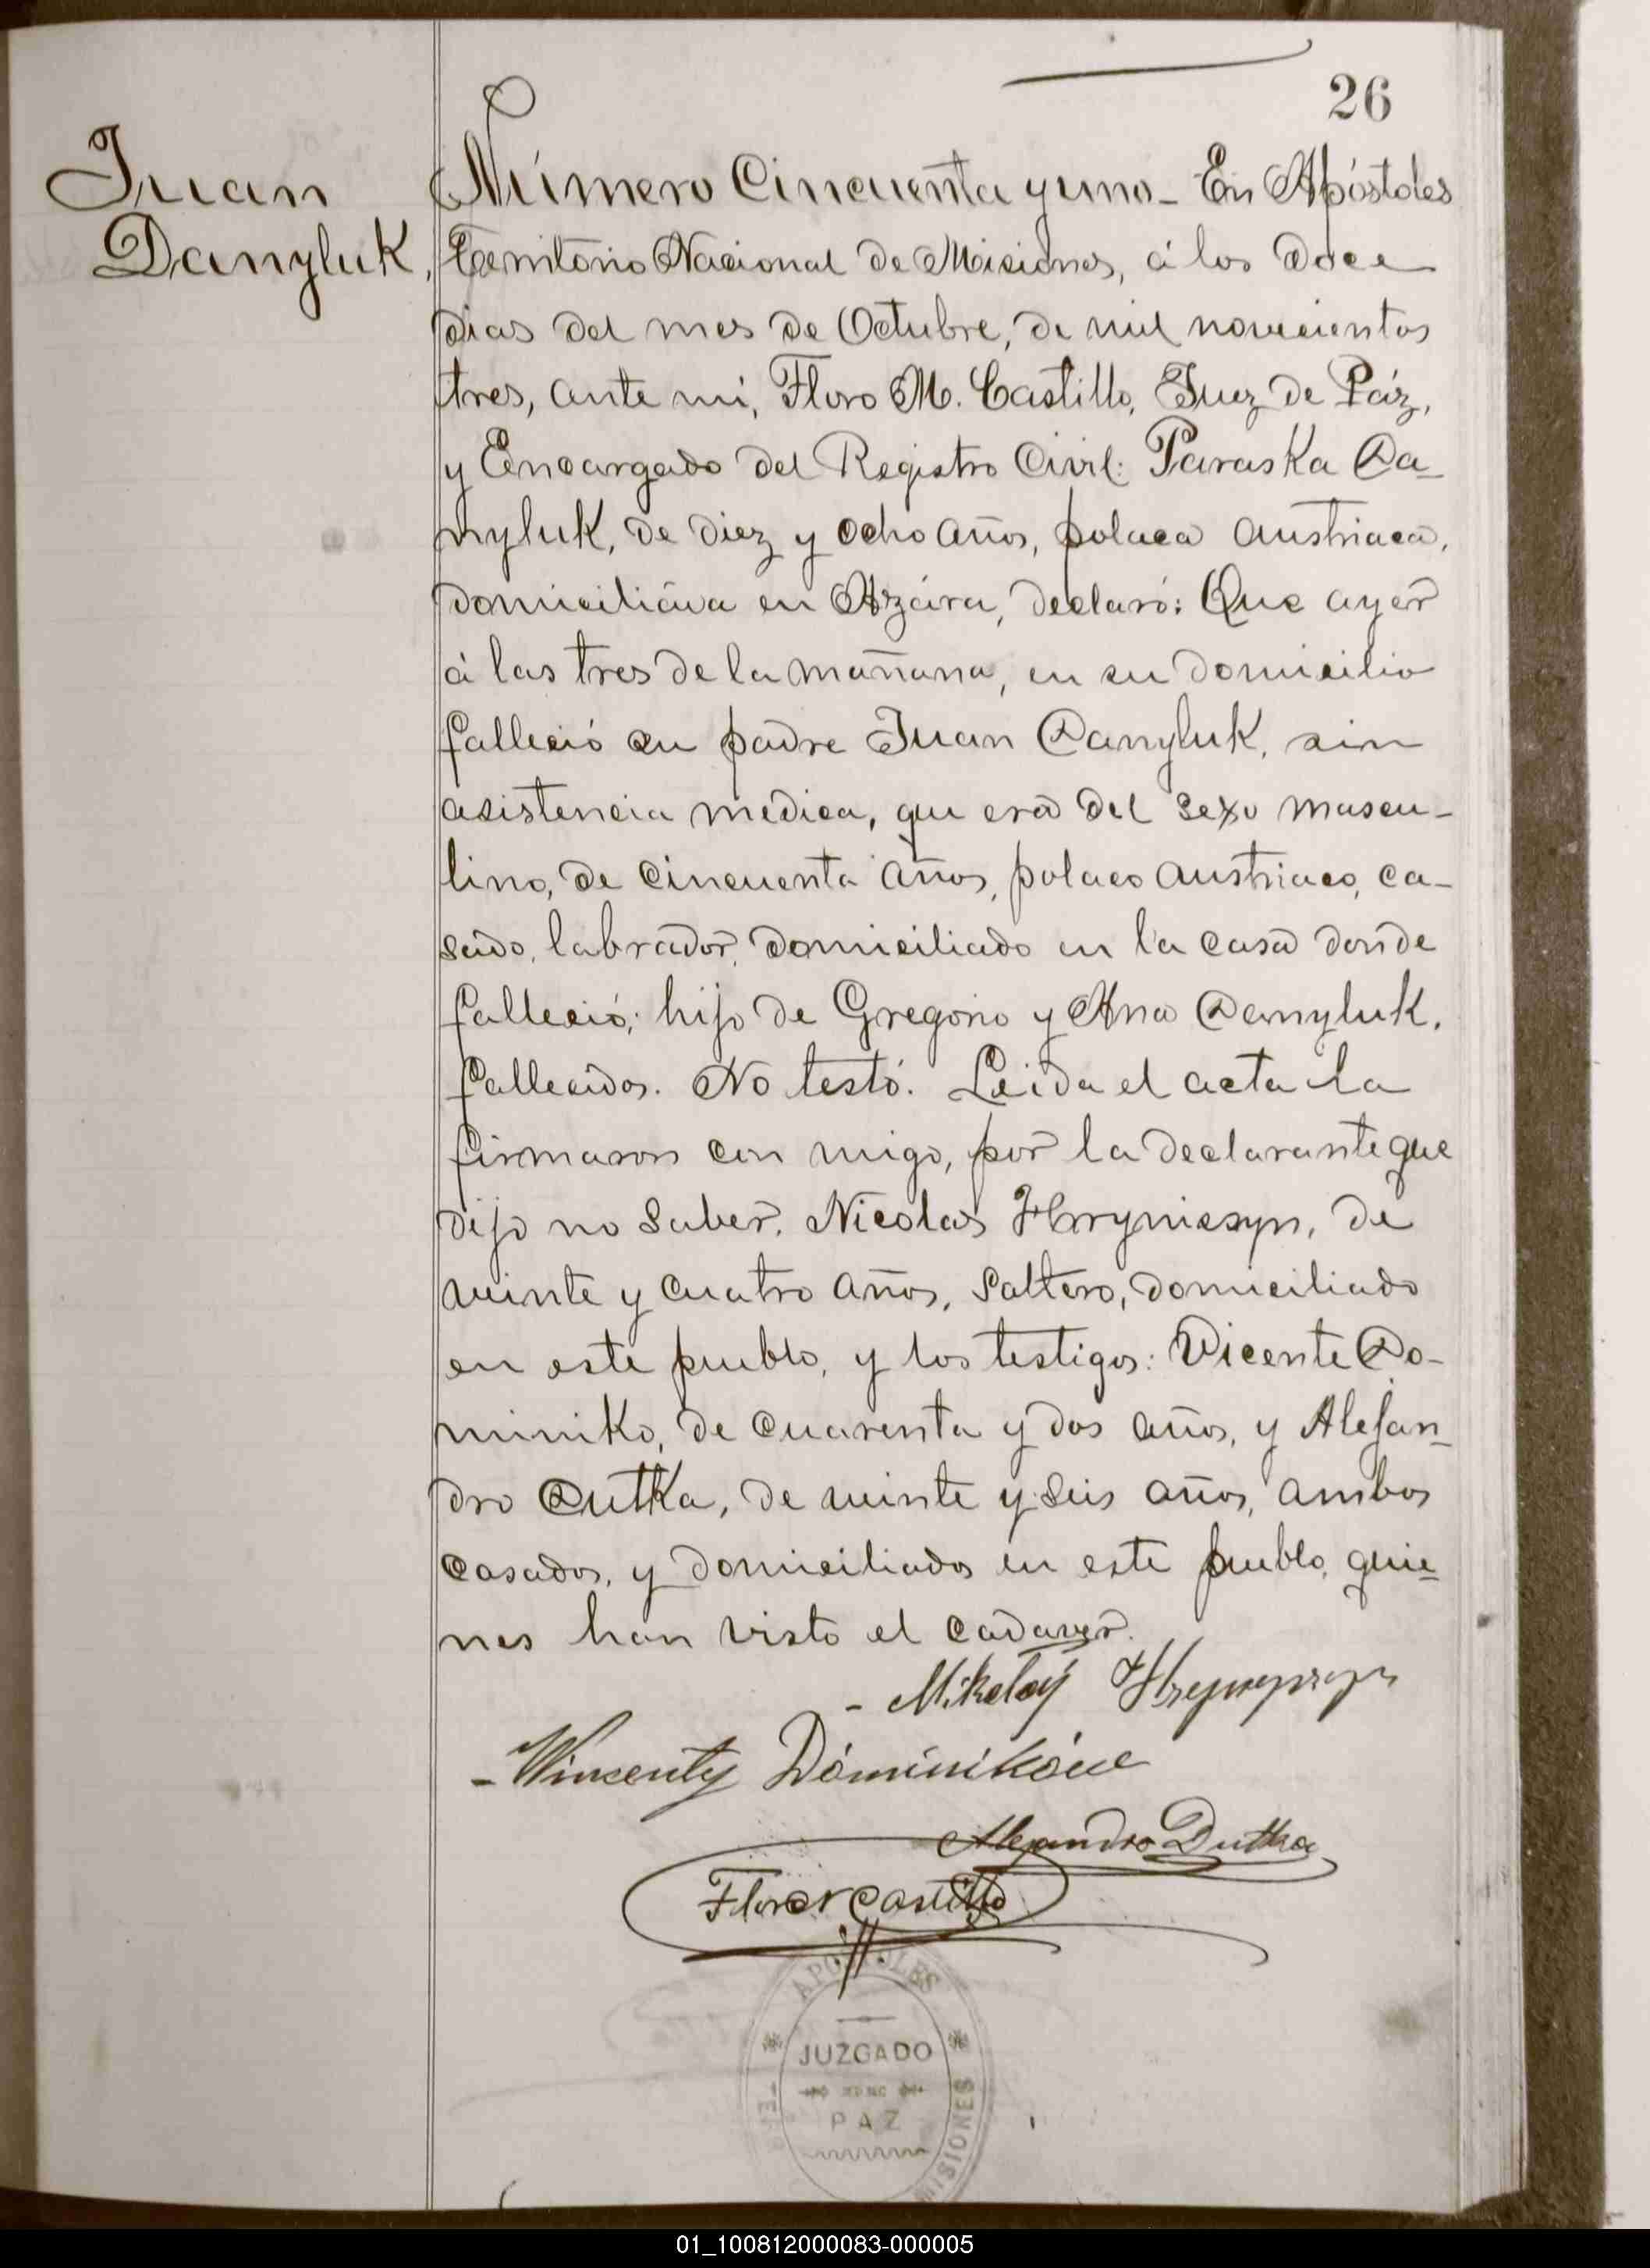 26
Juan
Danyluk,
Número Cincuenta y uno_ En Apóstoles
Territorio Nacional de Misiones, á los doce
dias del mes de Octubre, de mil novecientos
tres, ante mí, Floro M. Castillo, Juez de Páz,
y Encargado del Registro Civil: Paraska Da-
nyluk, de diez y ocho años, polaca austriaca,
domiciliáda en Azára, declaró: Que ayer
á las tres de la mañana, en su domicilio
falleció su padre Juan Danyluk, sin
asistencia medica, que era del sexo mascu-
lino, de cincuenta años, polaco austriaco, ca-
sado, labrador, domiciliado en la casa donde
falleció; hijo de Gregorio y Ana Danyluk,
fallecidos. No testó. Leida el acta la
firmaron con migo, por la declarante que
dijo no saber, Nicolas Hryniszyn, de
veinte y cuatro años, soltero, domiciliado
en este pueblo, y los testigos: Vicente Do-
miniko, de cuarenta y dos años, y Alejan-
dro Dutka, de veinte y seis años, ambos
casados, y domiciliados en este pueblo, quie-
nes han visto el cadaver.
- Mikołaj
- Wincenty Dóminików
Alejandro Dutka
Floro M Castillo
APOSTOLES
JUZGADO
DE
PAZ
MISIONES
01_100812000083-000005